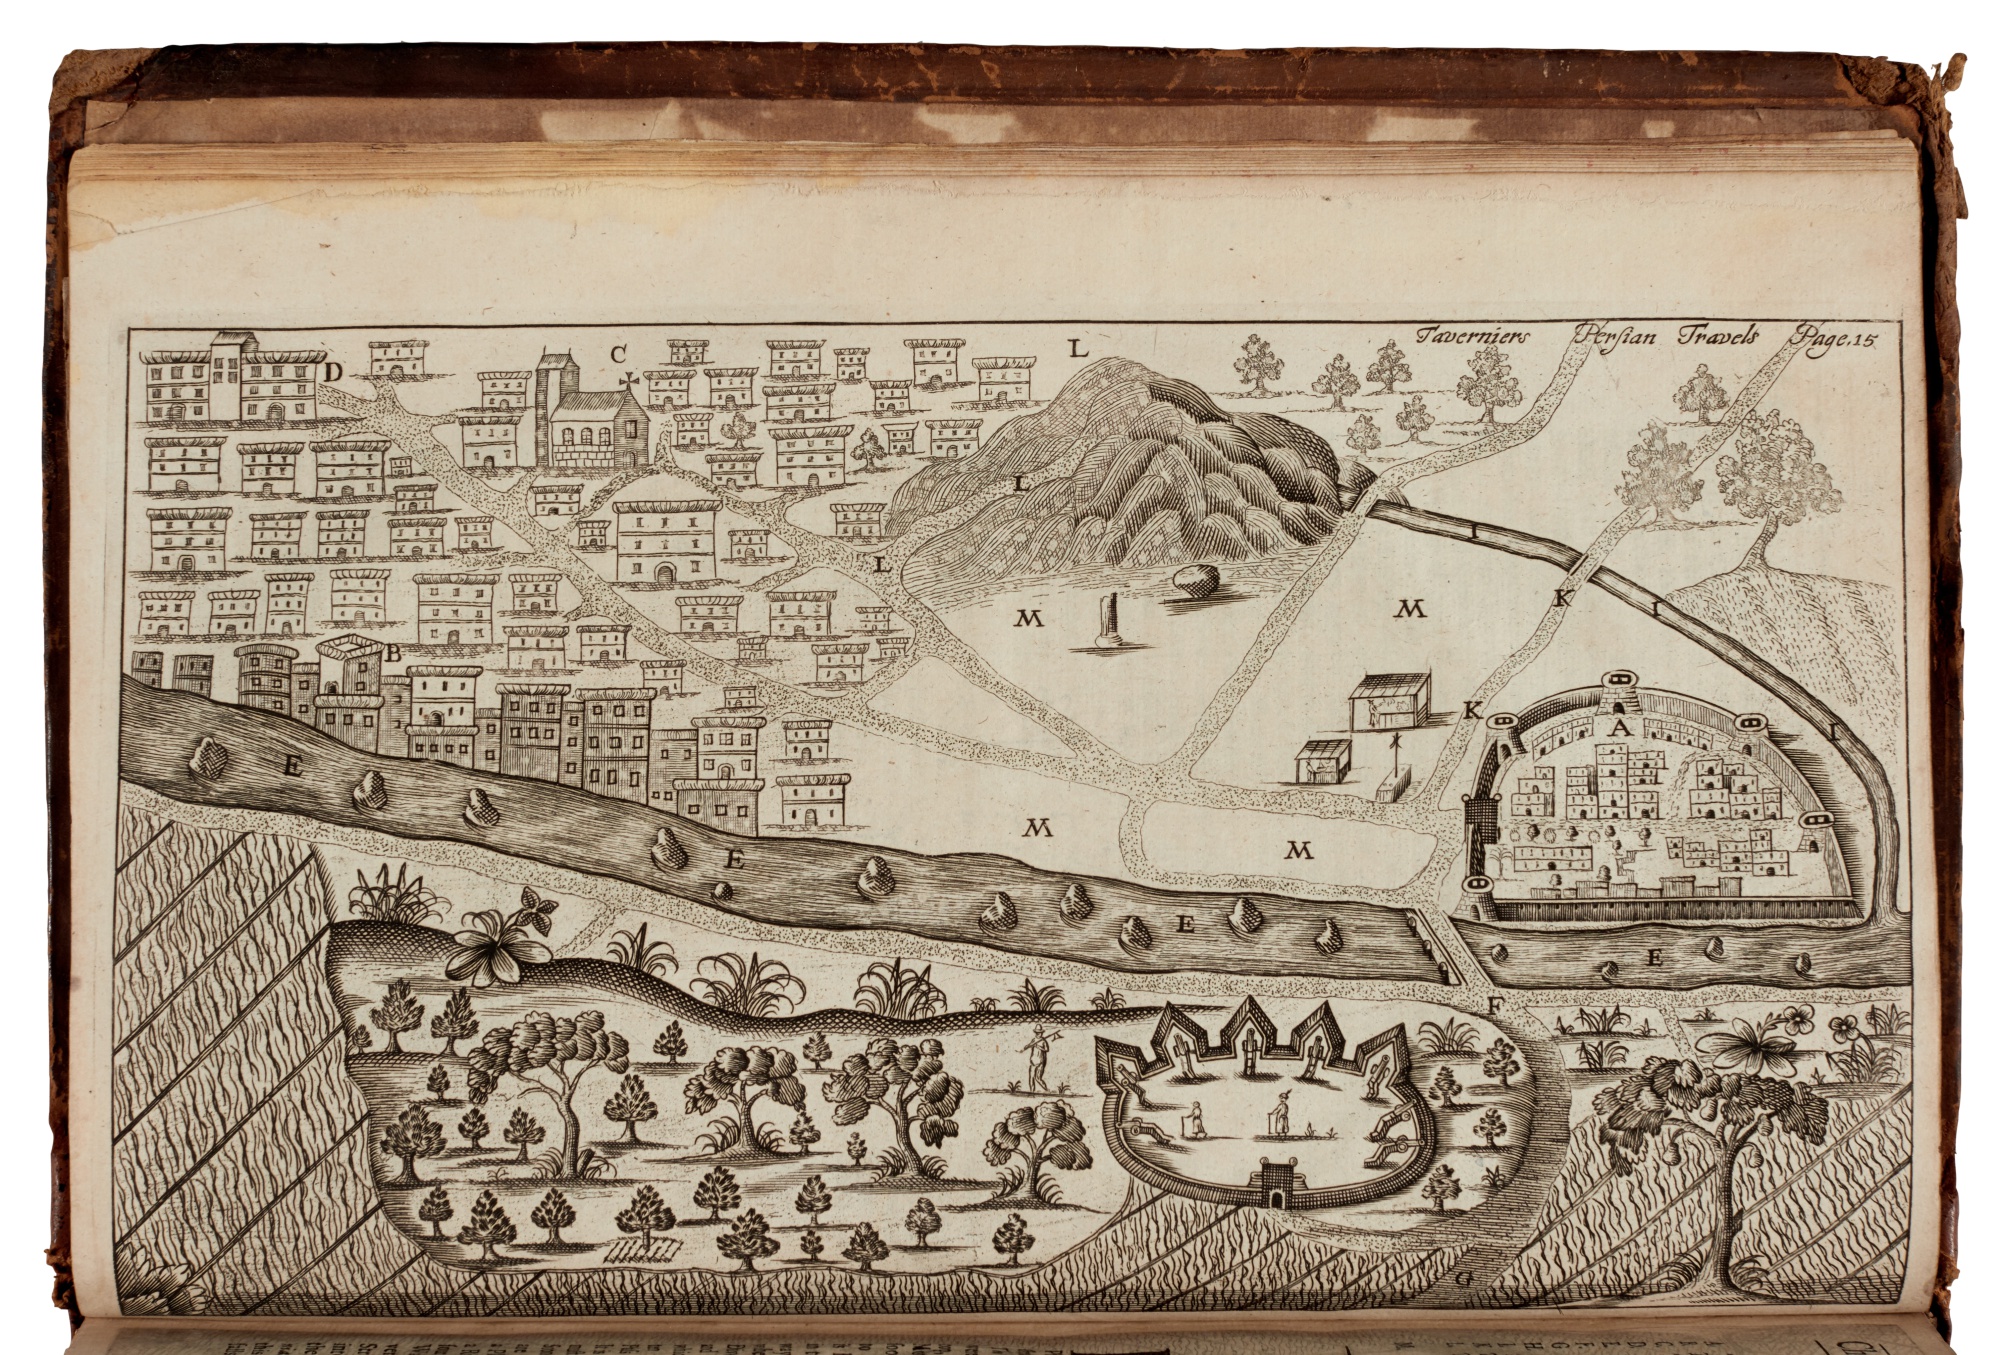 Taverniers Persian Travels Page.15
L
C
D
L
I
L
K
I
M
M
B
K
A
I
E
M
M
E
E
E
F
G